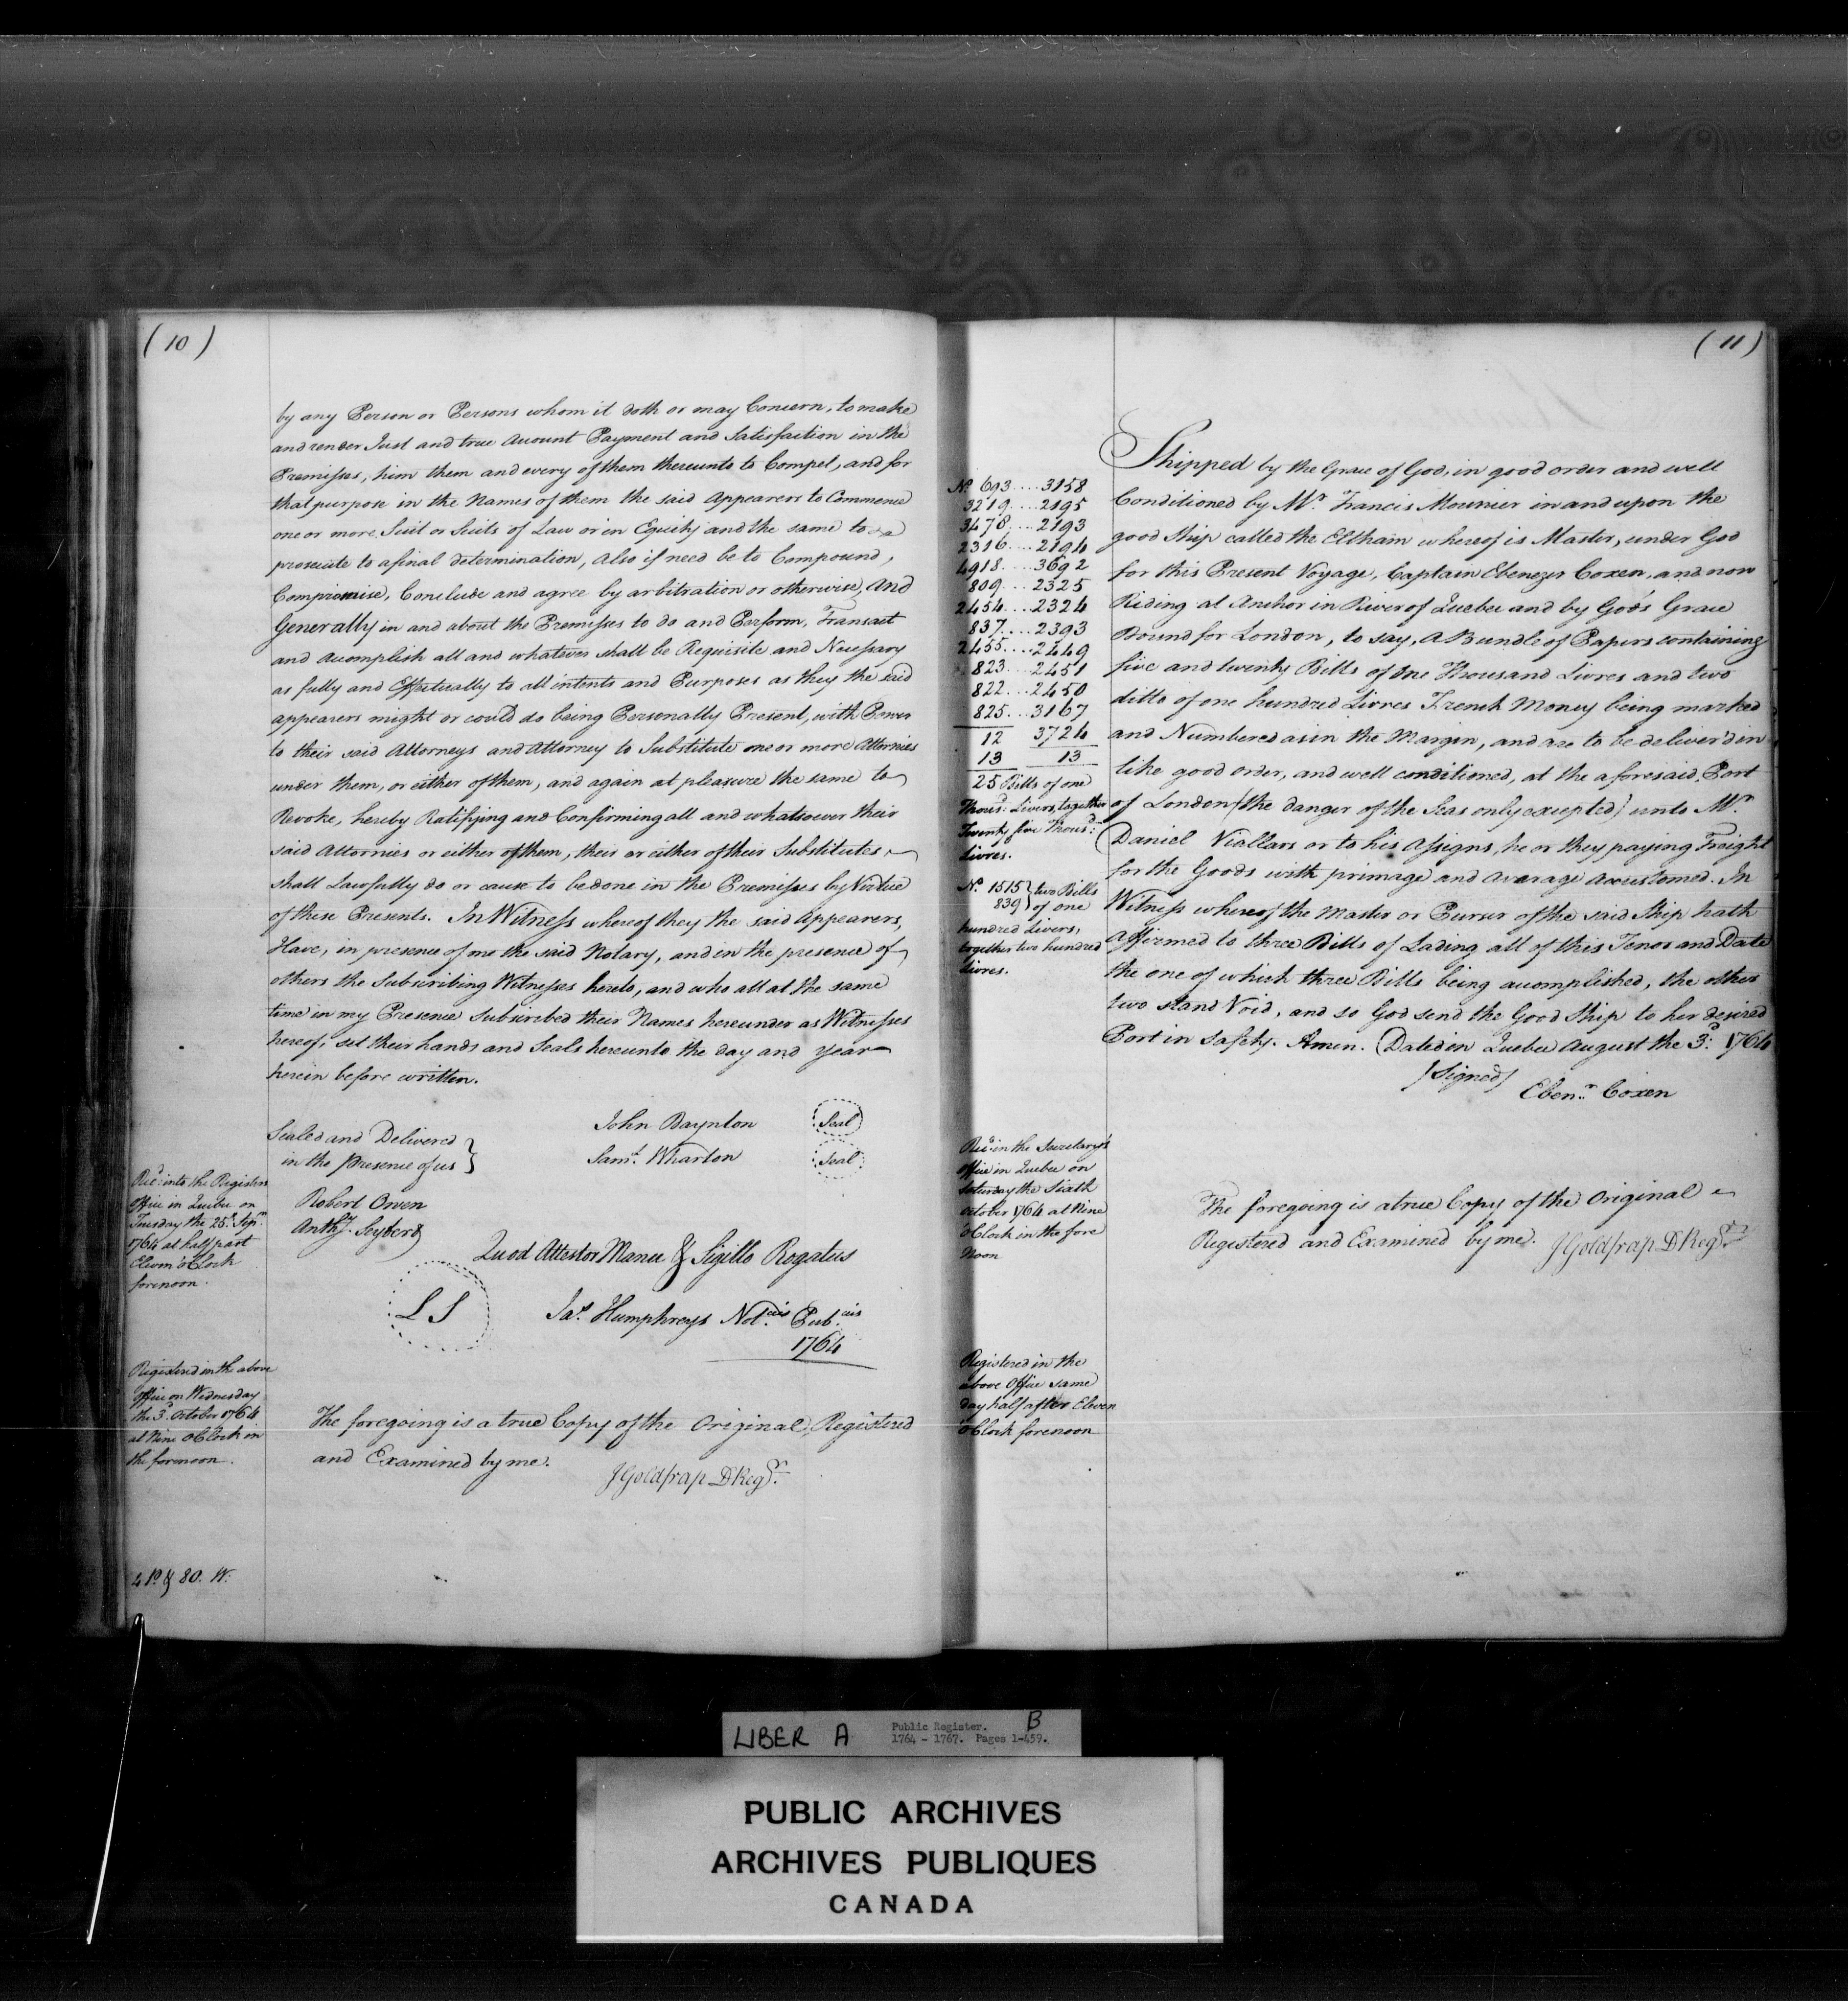 ( 10 )
by any Person or Persons whom it doth or may Concern, to make
and render Just and true Account Payment and Satisfaction in the
Premisses, him them and every of them thereunto to Compel, and for
that purpose in the Names of them the said Appearers to Commence
one or more Suit or Suits of Law or in Equity and the same to
prosecute to a final determination, also if need be to Compound,
Compromise, Conclude and agree by arbitration or otherwise, And
Generally in and about the Premisses to do and Perform, Transact
and Accomplish all and whatever shall be Requisite and Necessary
as fully and Effectually to all intents and Purposes as they the said
appearers might or could do being Personally Present, with Power
to their said Attorneys and Attorney to Substitute one or more Attornies
under them, or either of them, and again at pleasure the same to
Revoke, hereby Ratifying and Confirming all and whatsoever their
said Attornies or either of them, their or either of their Substitutes
shall Lawfully do or cause to be done in the Premisses by Virtue
of these Presents. In Witness whereof they the said Appearers,
Have, in presence of me the said Notary, and in the presence of
others the Subscribing Witnesses hereto, and who all at the same
time in my Presence Subscribed their Names hereunder as Witnesses
hereof, set their hands and Seals hereunto the day and year
herein before written.
Sealed and Delivered
in the Presence of us }
John Baynton (Seal)
Sam.l Wharton (Seal)
Robert Owen
Anth.y Seyfert
Rec.d into the Registers
Office in Quebec on
Tuesday the 25.th Sep.r
1764 at half past
Eleven o'Clock
forenoon.
Quod Attestor Manu & Sigillo Rogatus
L S
Ja.s Humphreys Not.cius Pub.cius
1764
Registered in the above
Office on Wednesday
the 3.d October 1764
at Nine o'Clock in
the forenoon.
The foregoing is a true Copy of the Original, Registered
and Examined by me.
J Goldfrap D Reg.r
4 P.s & 80. W.
( 11 )
N.o 693....3158
3219....2195
3478....2193
2316....2194
4918....3692
809....2325
2454....2324
837....2393
2455....2449
823....2451
822....2450
825....3167
12 3724
13 13
25 Bills of one
Thous.d Livers, together
Twenty five Thous.d
Livres.
N.o 1515 } two Bills
839 } of one
hundred Livers,
together two hundred
Livres.
Shipped by the Grace of God, in good order and well
Conditioned by M.r Francis Mounier in and upon the
good Ship called the Eltham whereof is Master, under God
for this Present Voyage, Captain Ebenezer Coxen, and now
Riding at Anchor in River of Quebec and by God's Grace
Bound for London, to say, A Bundle of Papers containing
five and twenty Bills of One Thousand Livres and two
ditto of one hundred Livres French Money being marked
and Numbered as in the Margin, and are to be deliver'd in
like good order, and well conditioned, at the aforesaid Port
of London (the danger of the Seas only excepted) unto M.r
Daniel Viallars or to his Assigns, he or they paying Freight
for the Goods with primage and Avarage Accustomed. In
Witness whereof the Master or Purser of the said Ship hath
affirmed to three Bills of Lading all of this Tenor and Date
the one of which three Bills being accomplished, the other
two stand Void, and so God send the Good Ship to her desired
Port in Safety. Amen. Dated in Quebec August the 3.d 1764
(Signed)
Eben.r Coxen
Rec.d in the Secretary's
Office in Quebec on
Saturday the Sixth
October 1764 at Nine
o'Clock in the fore
Noon
The foregoing is a true Copy of the Original
Registered and Examined by me. J Goldfrap D Reg.r
Registered in the
above Office same
day half after Eleven
o'Clock forenoon
LIBER A
Public Register. B
1764 - 1767. Pages 1-459.
PUBLIC ARCHIVES
ARCHIVES PUBLIQUES
CANADA